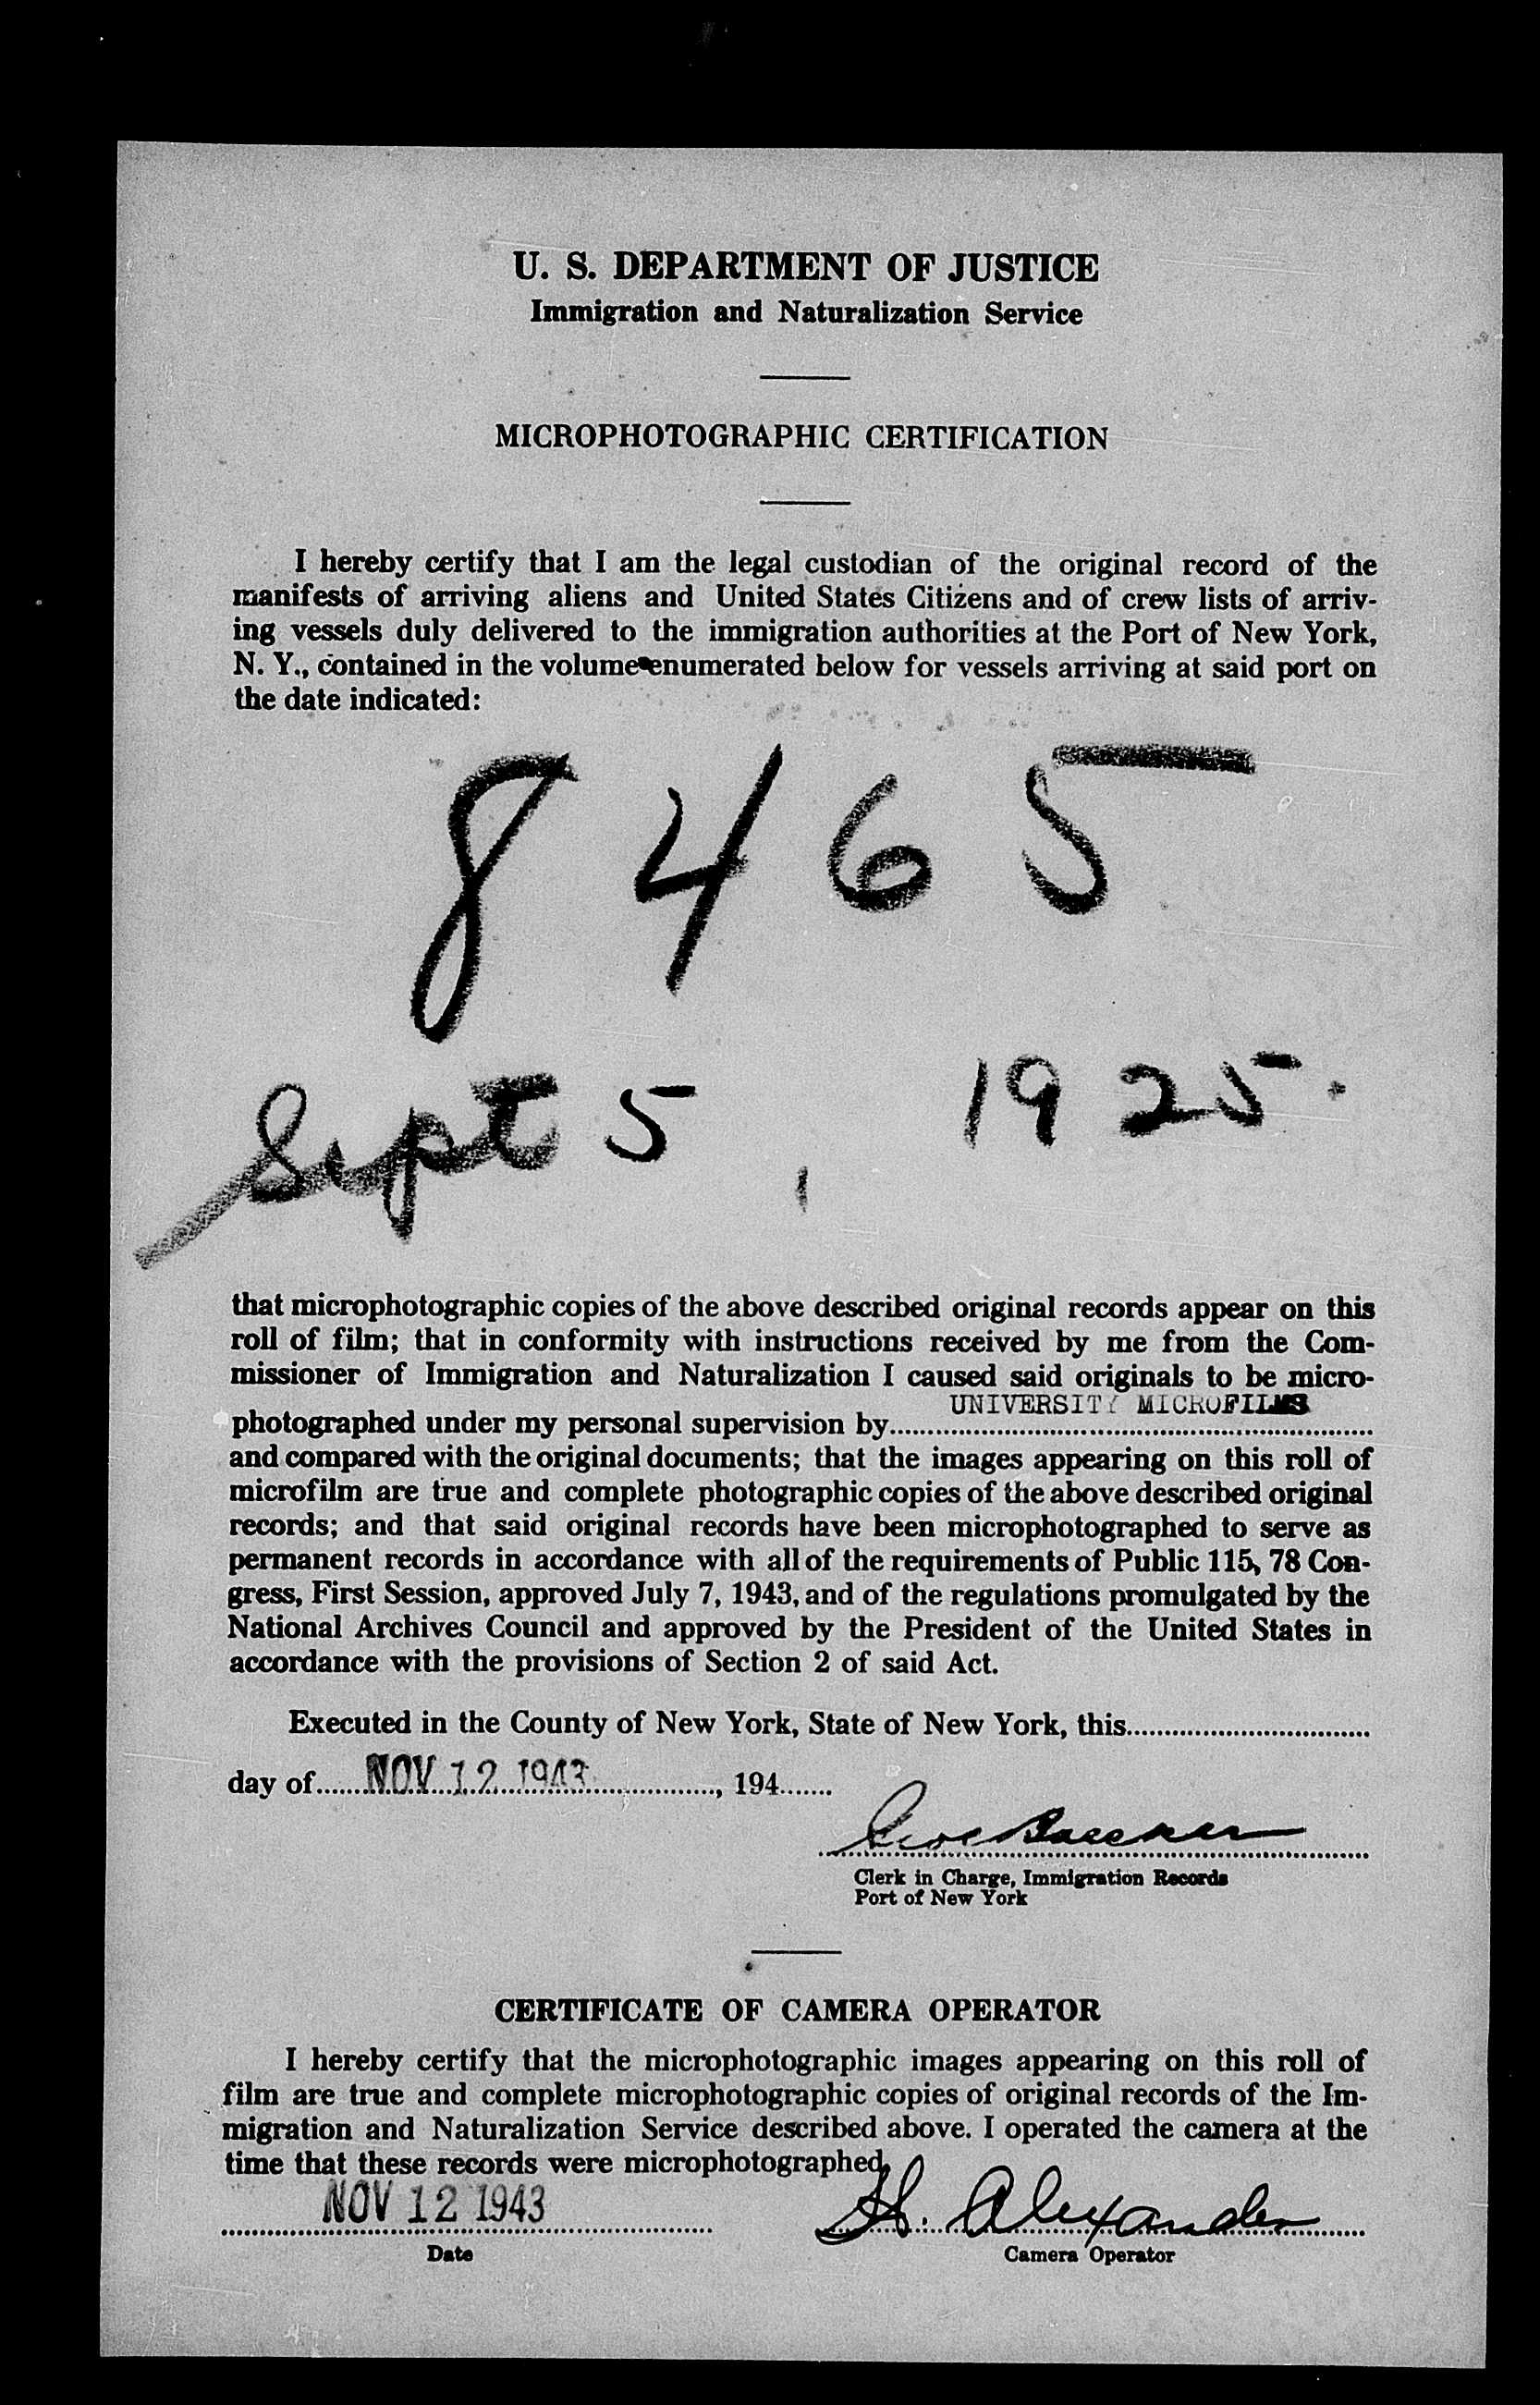 U. S. DEPARTMENT OF JUSTICE
Immigration and Naturalization Service
MICROPHOTOGRAPHIC CERTIFICATION
I hereby certify that I am the legal custodian of the original record of the
manifests of arriving aliens and United States Citizens and of crew lists of arriv-
ing vessels duly delivered to the immigration authorities at the Port of New York,
N. Y., contained in the volume enumerated below for vessels arriving at said port on
the date indicated:
8465
Sept 5, 1925.
that microphotographic copies of the above described original records appear on this
roll of film; that in conformity with instructions received by me from the Com-
missioner of Immigration and Naturalization I caused said originals to be micro-
UNIVERSITY MICROFILMS
photographed under my personal supervision by
and compared with the original documents; that the images appearing on this roll of
microfilm are true and complete photographic copies of the above described original
records; and that said original records have been microphotographed to serve as
permanent records in accordance with all of the requirements of Public 115, 78 Con-
gress, First Session, approved July 7, 1943, and of the regulations promulgated by the
National Archives Council and approved by the President of the United States in
accordance with the provisions of Section 2 of said Act.
Executed in the County of New York, State of New York, this
day of NOV 12 1943, 194
Clerk in Charge, Immigration Records
Port of New York
CERTIFICATE OF CAMERA OPERATOR
I hereby certify that the microphotographic images appearing on this roll of
film are true and complete microphotographic copies of original records of the Im-
migration and Naturalization Service described above. I operated the camera at the
time that these records were microphotographed.
NOV 12 1943 H. Alexander
Date Camera Operator